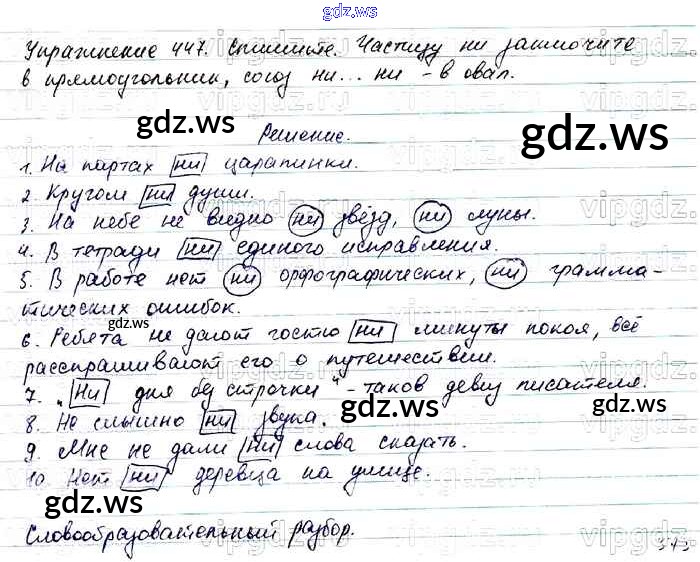 gdz.ws
Упражнение 447. Спишите. Частицу ни заключите
в прямоугольник, союз ни... ни - в овал.
gdz.ws
gdz.ws
Решение.
1. На партах ни царапинки.
2. Кругом ни души.
3. На небе не видно ни звёзд, ни луны.
4. В тетради ни единого исправления.
5. В работе нет ни орфографических, ни грамма-
тических ошибок.
gdz.ws
6. Ребята не дают гостю ни минуты покоя, всё
расспрашивают его о путешествии.
7. "Ни дня без строчки" - таков девиз писателя.
gdz.ws
8. Не слышно ни звука.
9. Мне не дали ни слова сказать.
10. Нет ни деревца на улице.
gdz.ws
gdz.ws
Словообразовательный разбор.
373